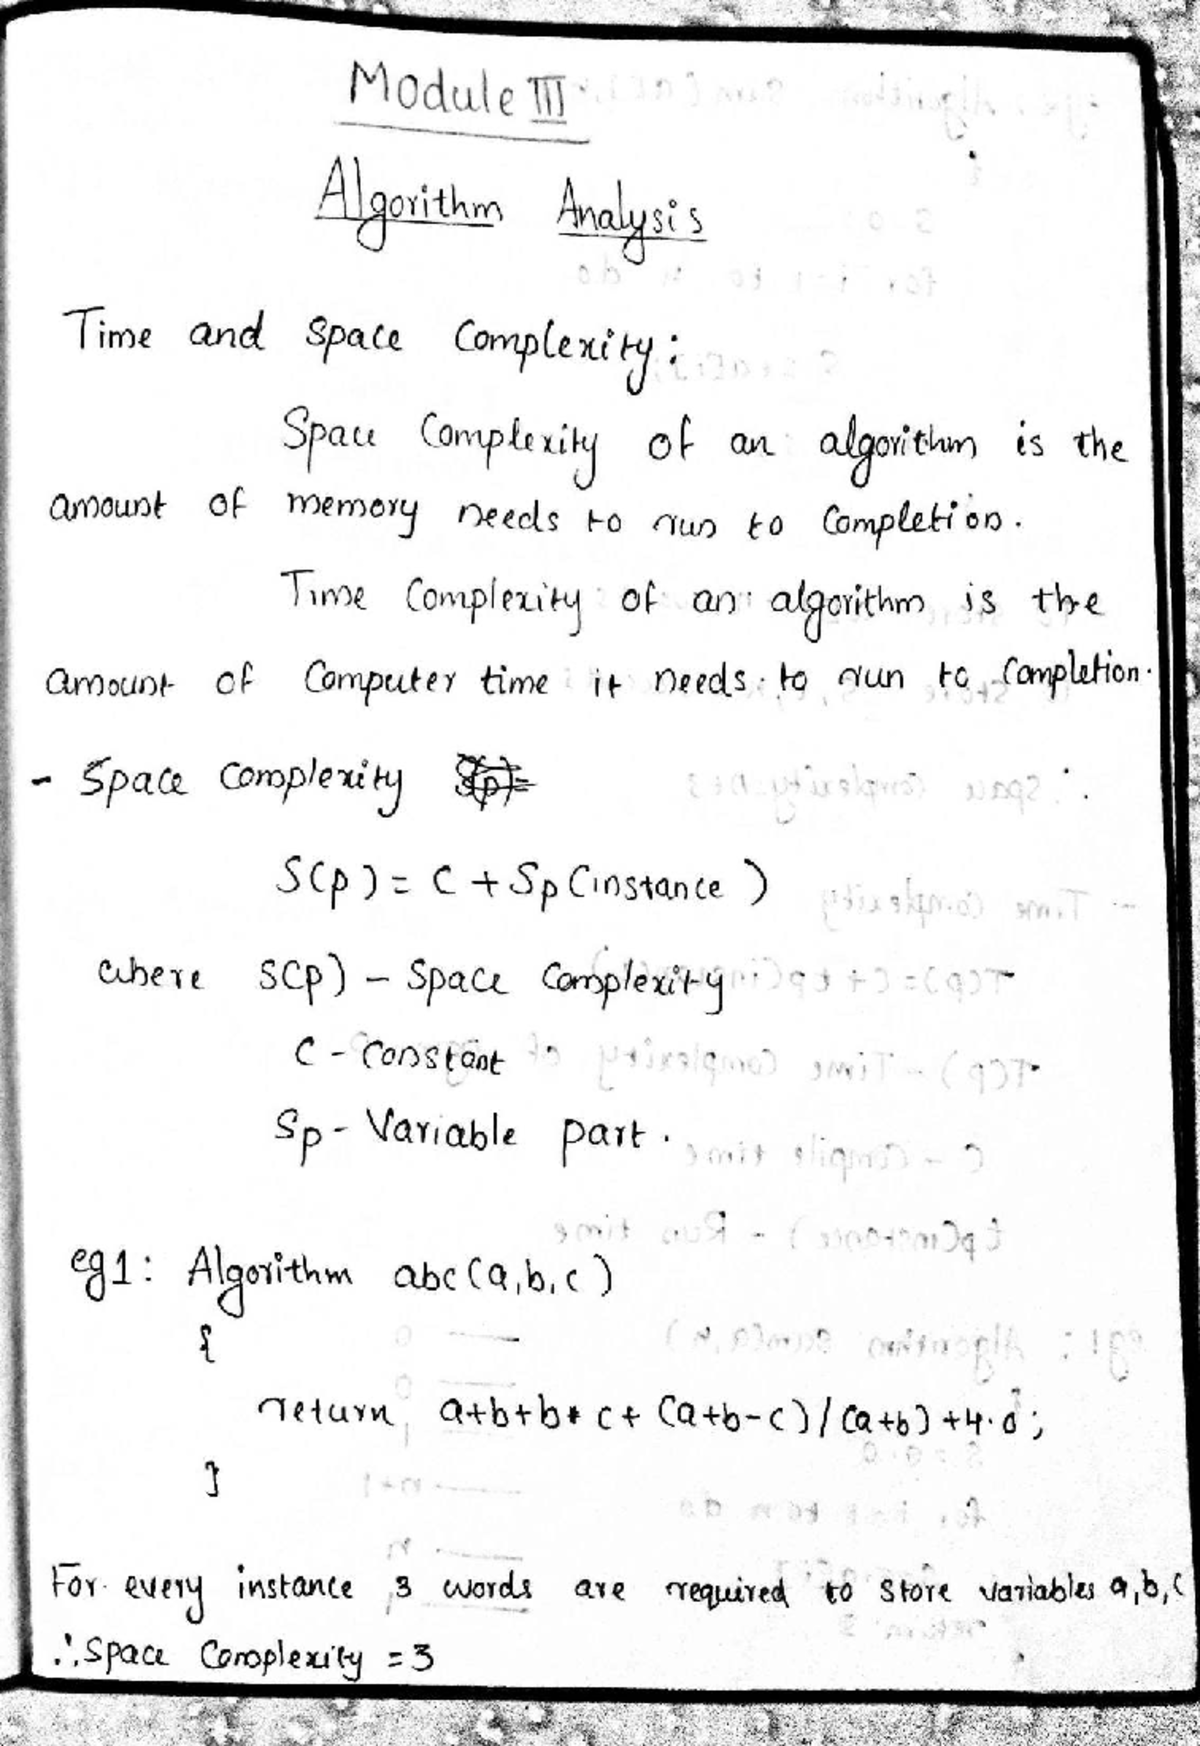 Module III
Algorithm Analysis
Time and space Complexity:
Space Complexity of an algorithm is the
amount of memory needs to run to completion.
Time Complexity of an algorithm is the
amount of Computer time it needs to run to Completion.
- Space Complexity
S(p) = C + Sp (instance)
where S(p) - Space Complexity
C - Constant
Sp - Variable part.
eg1: Algorithm abc(a,b,c)
{
return a+b+b*c+(a+b-c)/(a+b)+4.0;
}
For every instance 3 words are required to store variables a,b,c
∴ Space Complexity = 3